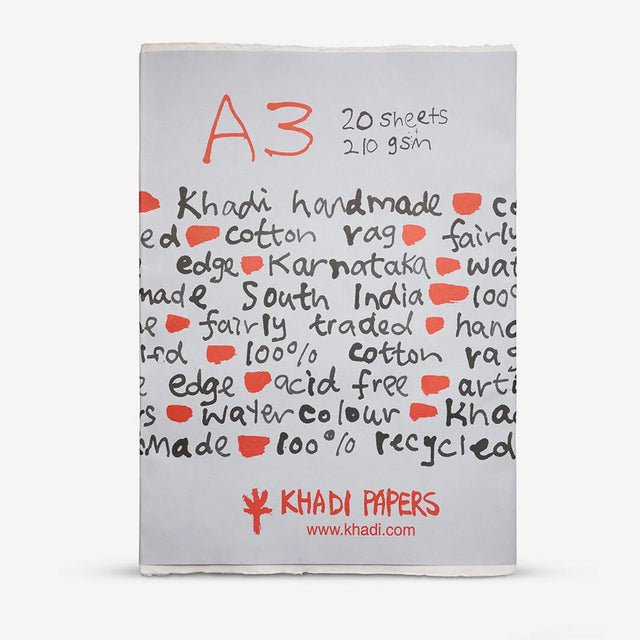 A3
20 sheets
210 gsm
Khadi handmade co
ed cotton rag fairly
edge Karnataka wat
made South India 100
e fairly traded hand
100% cotton rag
e edge acid free arti
rs watercolour Kha
made 100% recycled
KHADI PAPERS
www.khadi.com